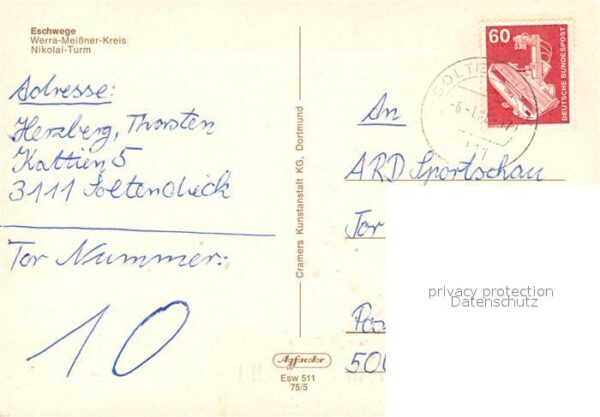 Eschwege
Werra-Meißner-Kreis
Nikolai-Turm
Adresse:
Herzberg, Thorsten
Kattien 5
3111 Soltendieck
Tor Nummer:
10
Cramers Kunstanstalt KG, Dortmund
Agfacolor
Esw 511
75/5
60
DEUTSCHE BUNDESPOST
An
ARD Sportschau
Tor
500
privacy protection
Datenschutz